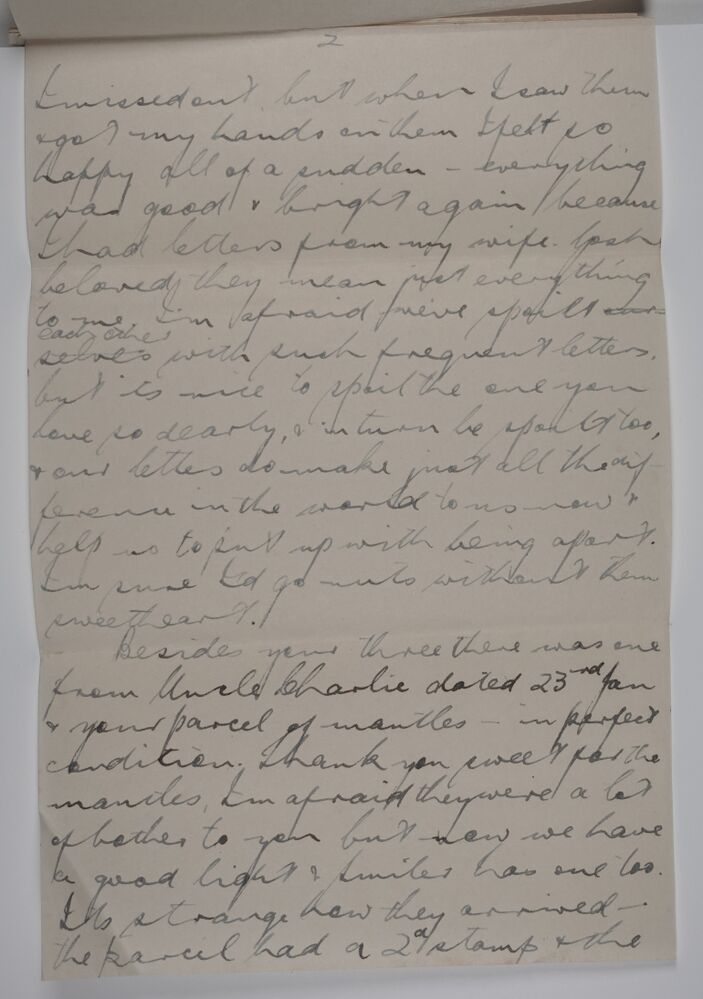 2
I missed out, but when I saw them
& got my hands on them I felt so
happy all of a sudden – everything
was good & bright again because
I had letters from my wife. Gosh
beloved, they mean just everything
to me, I'm afraid we've spoilt our-
each other
selves with such frequent letters,
but its nice to spoil the one you
love so dearly, & in turn be spoilt too,
& our letters do make just all the dif-
ference in the world to us now &
help us to put up with being apart.
I'm sure I'd go nuts without them
sweetheart.
Besides your three there was one
from Uncle Charlie dated 23rd Jan
& your parcel of mantles – in perfect
condition. Thank you sweet for the
mantles, I'm afraid they were a lot
of bother to you but now we have
a good light & Smiles has one too.
Its strange how they arrived –
the parcel had a 2d stamp & the